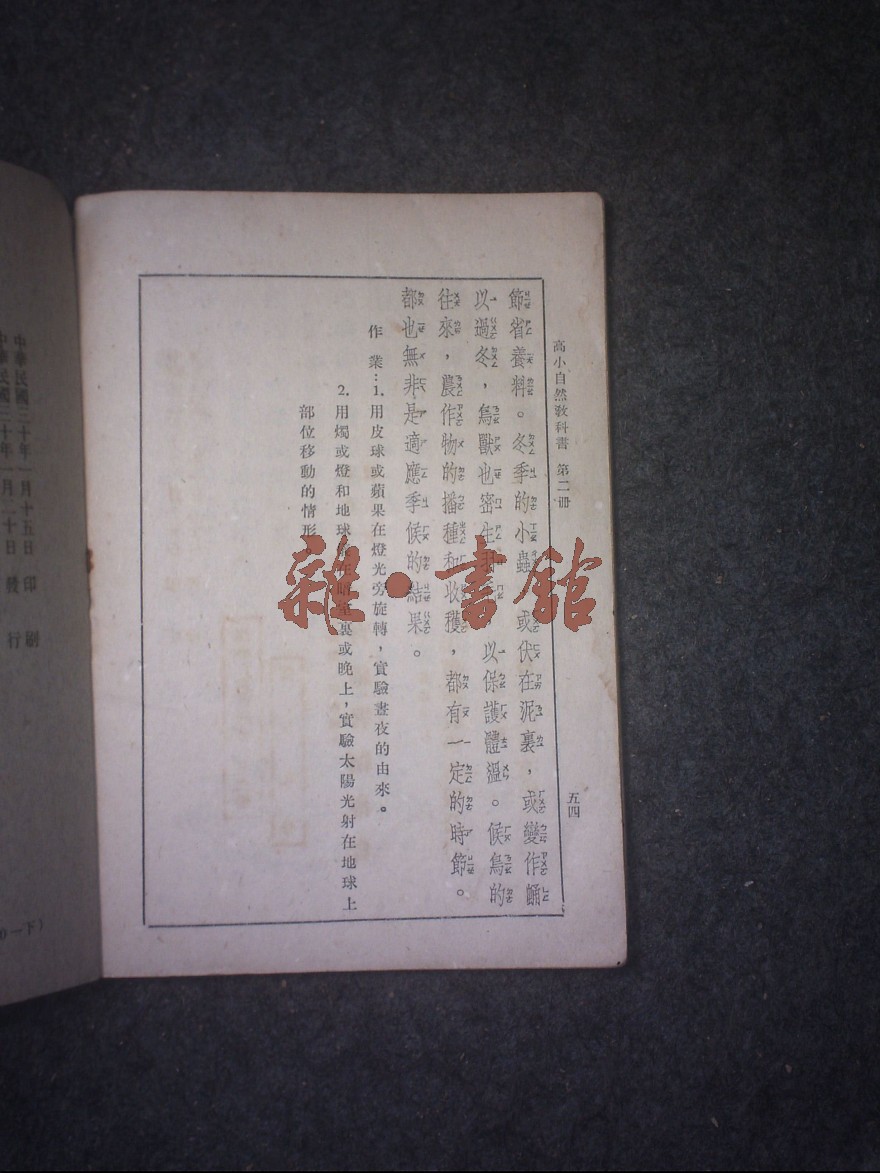 高小自然教科書 第二冊 五四
節省養料。冬季的小蟲 或伏在泥裏，或變作蛹
以過冬，鳥獸也密生羽 以保護體溫。候鳥的
往來，農作物的播種和收穫，都有一定的時節。
都也無非是適應季候的結果。
作業：1.用皮球或蘋果在燈光旁旋轉，實驗晝夜的由來。
2.用燭或燈和地球 在暗室裏或晚上，實驗太陽光射在地球上
部位移動的情形
雜·書館
中華民國三十年一月十五日印刷
中華民國三十年一月二十日發行
0一下）